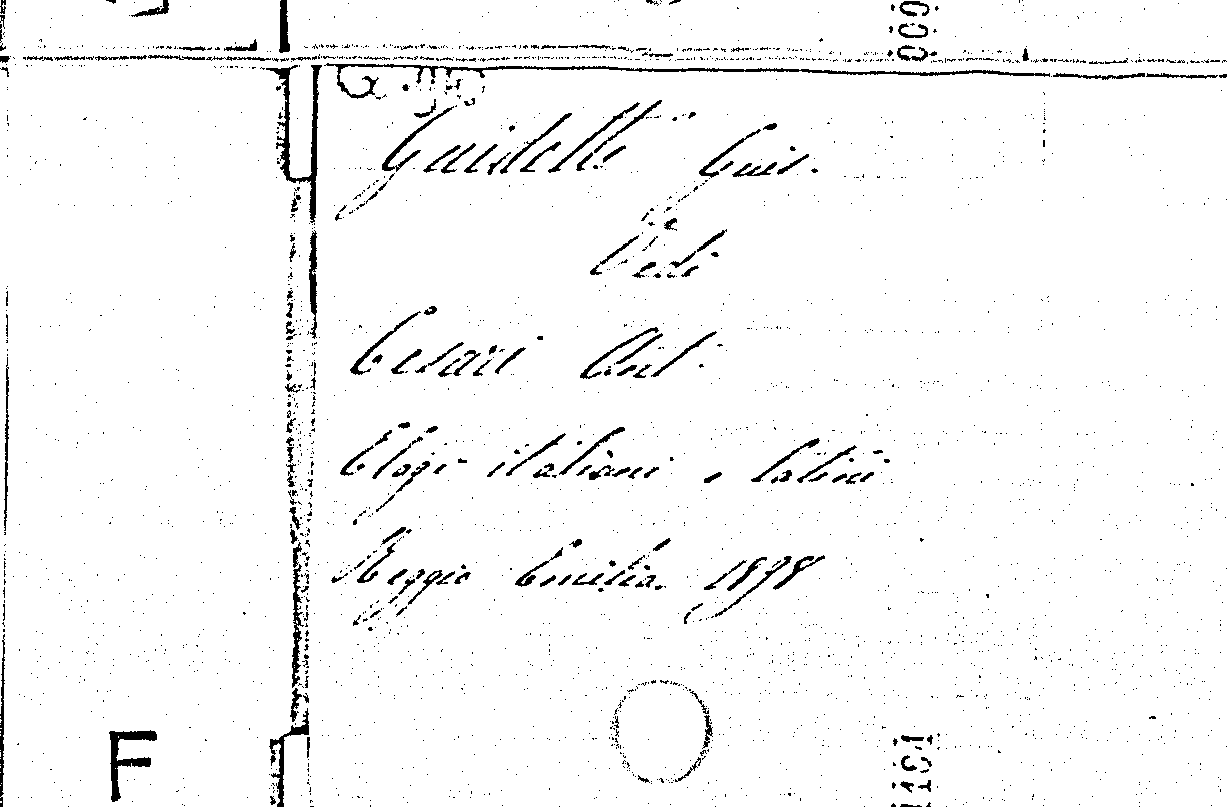 Guidetti Gius.
Vedi
Cesari Ant.
Elogi italiani e latini
Reggio Emilia. 1898
F